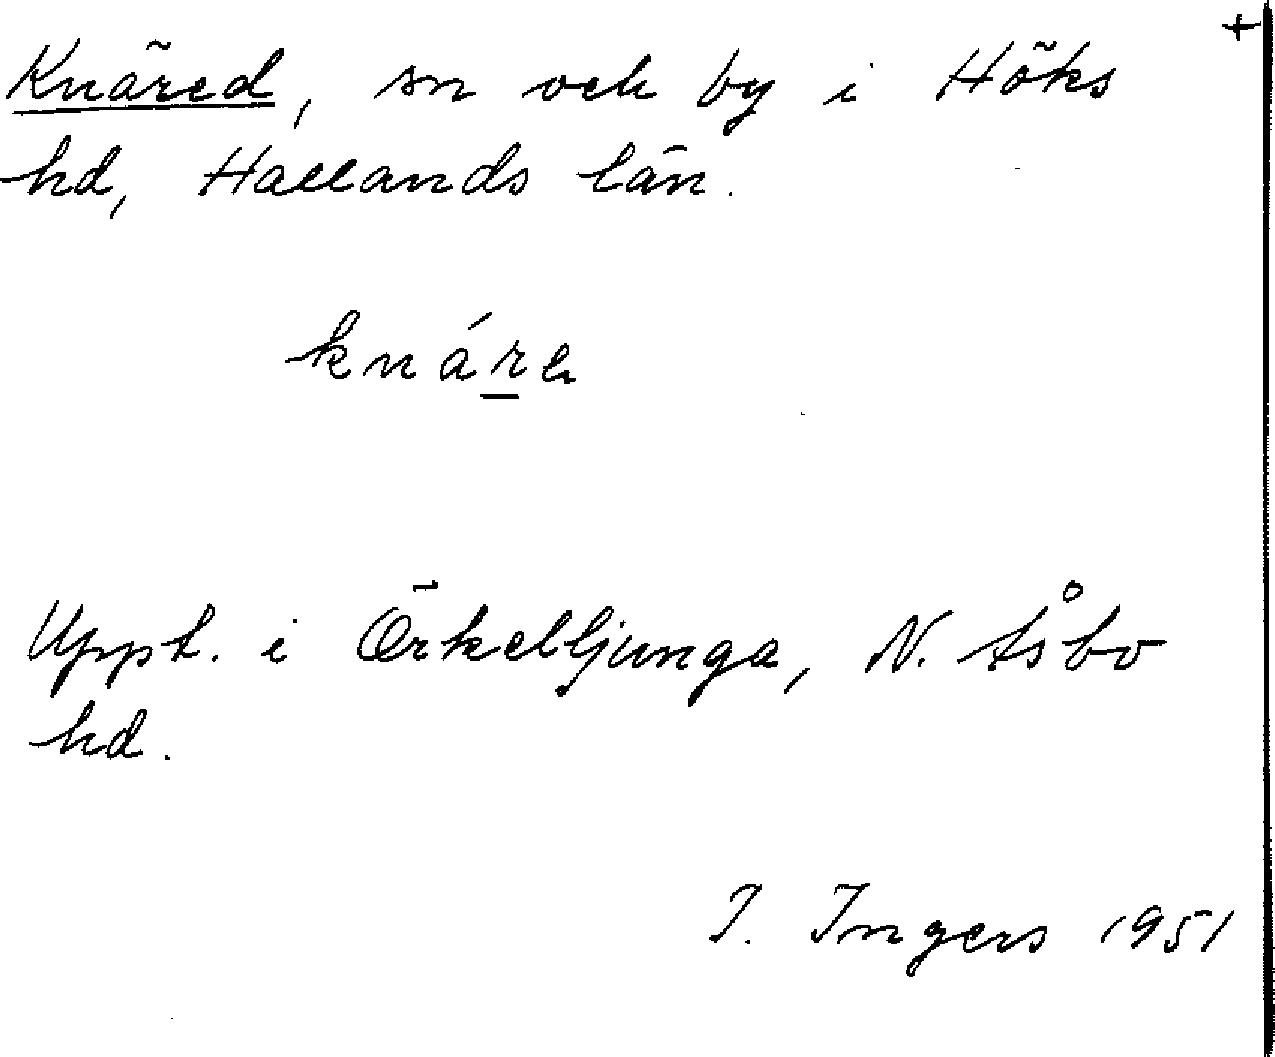 +
Knäred, sn och by i Höks
hd, Hallands län.
knáre
Uppt. i Örkelljunga, N. Åsbo
hd.
I. Ingers 1951